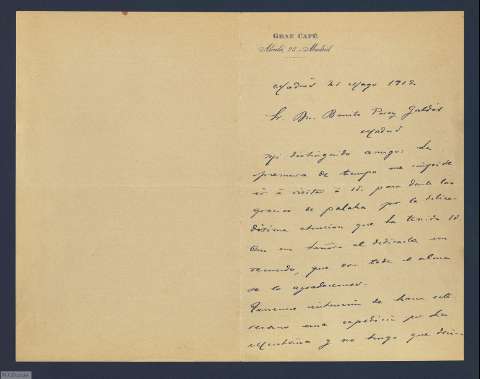 GRAN CAFÉ
Alcalá, 22 - Madrid
Madrid 21 Mayo 1912
Sr. Dn. Benito Perez Galdós
Madrid
Mi distinguido amigo: La
premura de tiempo me impide
ir á visitar á Vd. para darle las
gracias de palabra por la delica-
dísima atencion que ha tenido Vd.
con mi al dedicarle un
recuerdo, que con toda el alma
se lo agradecemos.
Tenemos intención de hacer este
verano una expedición por la
y no tengo que decir